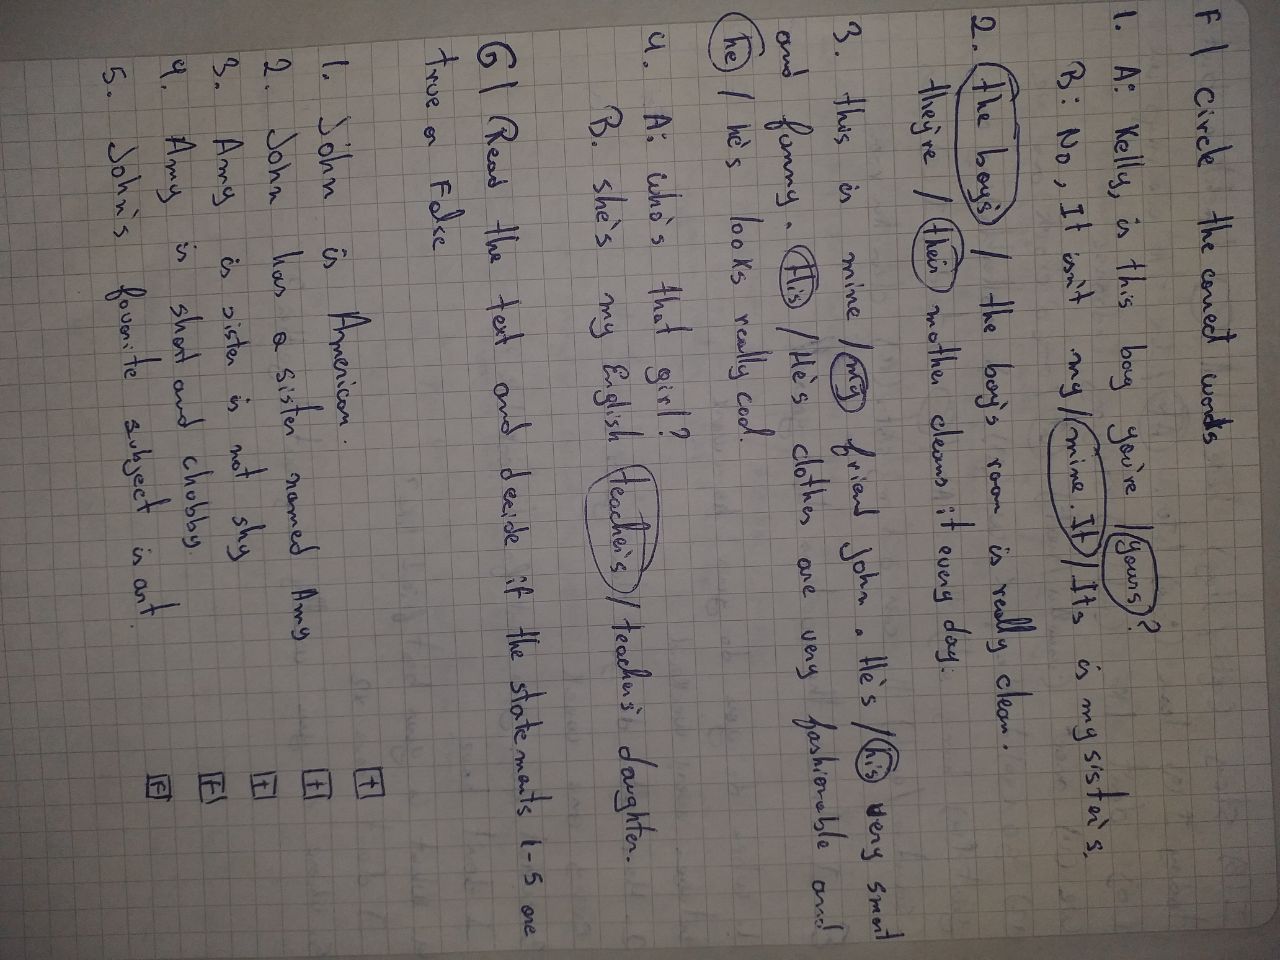 F/ Circle the correct words
1. A: Kelly, is this bag you're / yours?
B: No, It isn't my / mine. It / Its is my sister's,
2. the boys / the boy's room is really clean.
they're / their mother cleans it every day.
3. this is mine / my friend John. He's / his very smart
and funny. His / He's clothes are very fashionable and
he / he's looks really cool.
4. A: who's that girl?
B. she's my English teacher's / teachers' daughter.
G/ Read the text and decide if the statements 1-5 are
true or False
1. John is American.
2. John has a sister named Amy
3. Amy is sister is not shy
4. Amy is short and chubby
5. John's favorite subject is art.
T
T
T
F
F